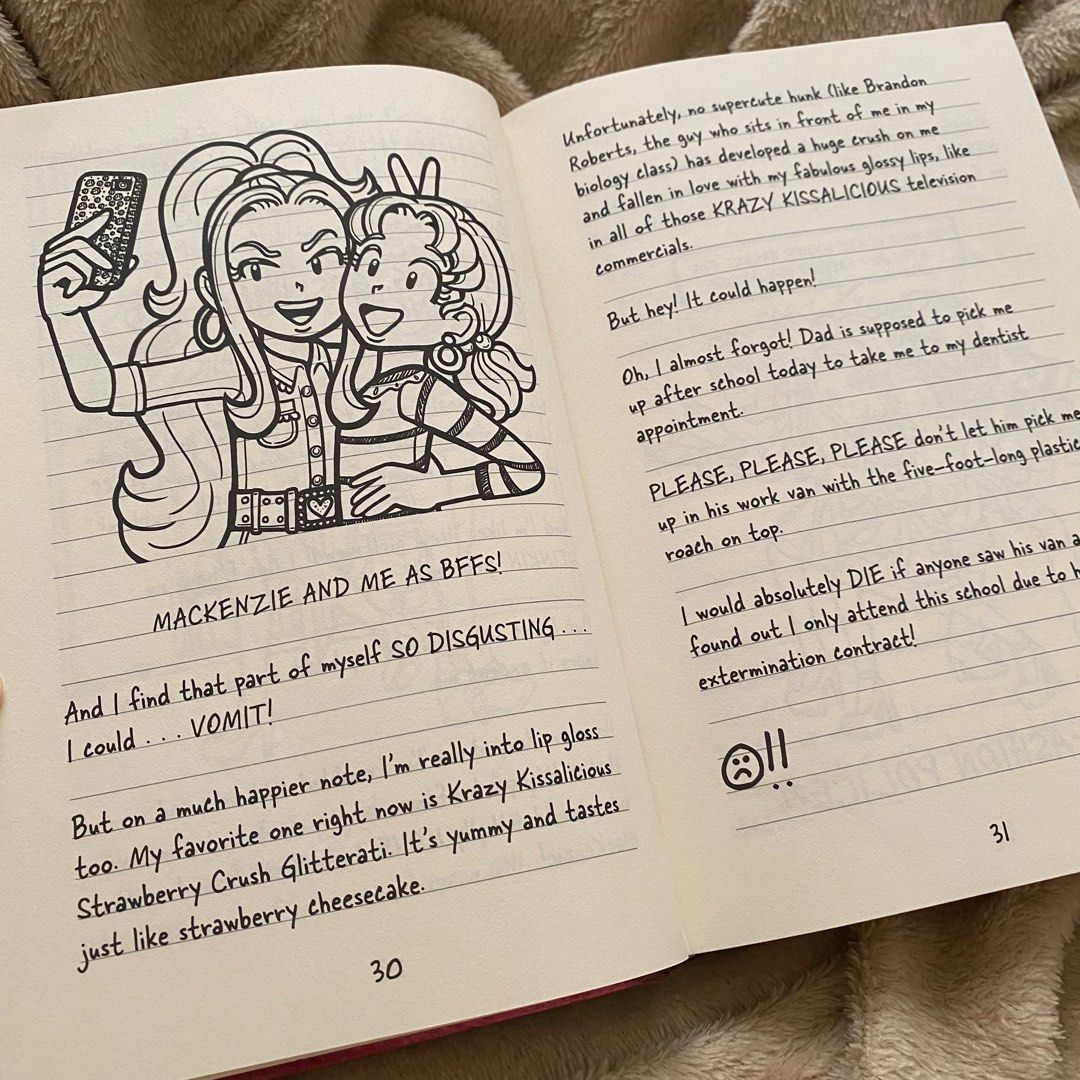 MACKENZIE AND ME AS BFFS!
And I find that part of myself SO DISGUSTING . . .
I could . . . VOMIT!
But on a much happier note, I'm really into lip gloss
too. My favorite one right now is Krazy Kissalicious
Strawberry Crush Glitterati. It's yummy and tastes
just like strawberry cheesecake.
30
Unfortunately, no supercute hunk (like Brandon
Roberts, the guy who sits in front of me in my
biology class) has developed a huge crush on me
and fallen in love with my fabulous glossy lips, like
in all of those KRAZY KISSALICIOUS television
commercials.
But hey! It could happen!
Oh, I almost forgot! Dad is supposed to pick me
up after school today to take me to my dentist
appointment.
PLEASE, PLEASE, PLEASE don't let him pick me
up in his work van with the five-foot-long plastic
roach on top.
I would absolutely DIE if anyone saw his van
found out I only attend this school due to
extermination contract!
!!
31